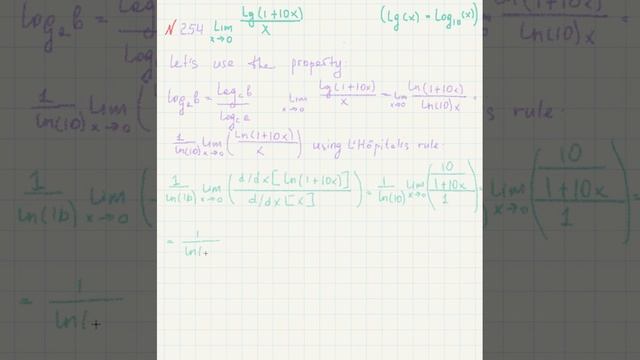 № 254 lim x→0 lg(1+10x)/x (lg(x) = log₁₀(x))
Let's use the property:
logₐb = log_c b / log_c a lim x→0 lg(1+10x)/x = lim x→0 ln(1+10x)/ln(10)x =
1/ln(10) lim x→0 (ln(1+10x)/x) using L'Hôpital's rule:
1/ln(10) lim x→0 (d/dx[ln(1+10x)]/d/dx[x]) = 1/ln(10) lim x→0 (10/1+10x/1) =
= 1/ln(